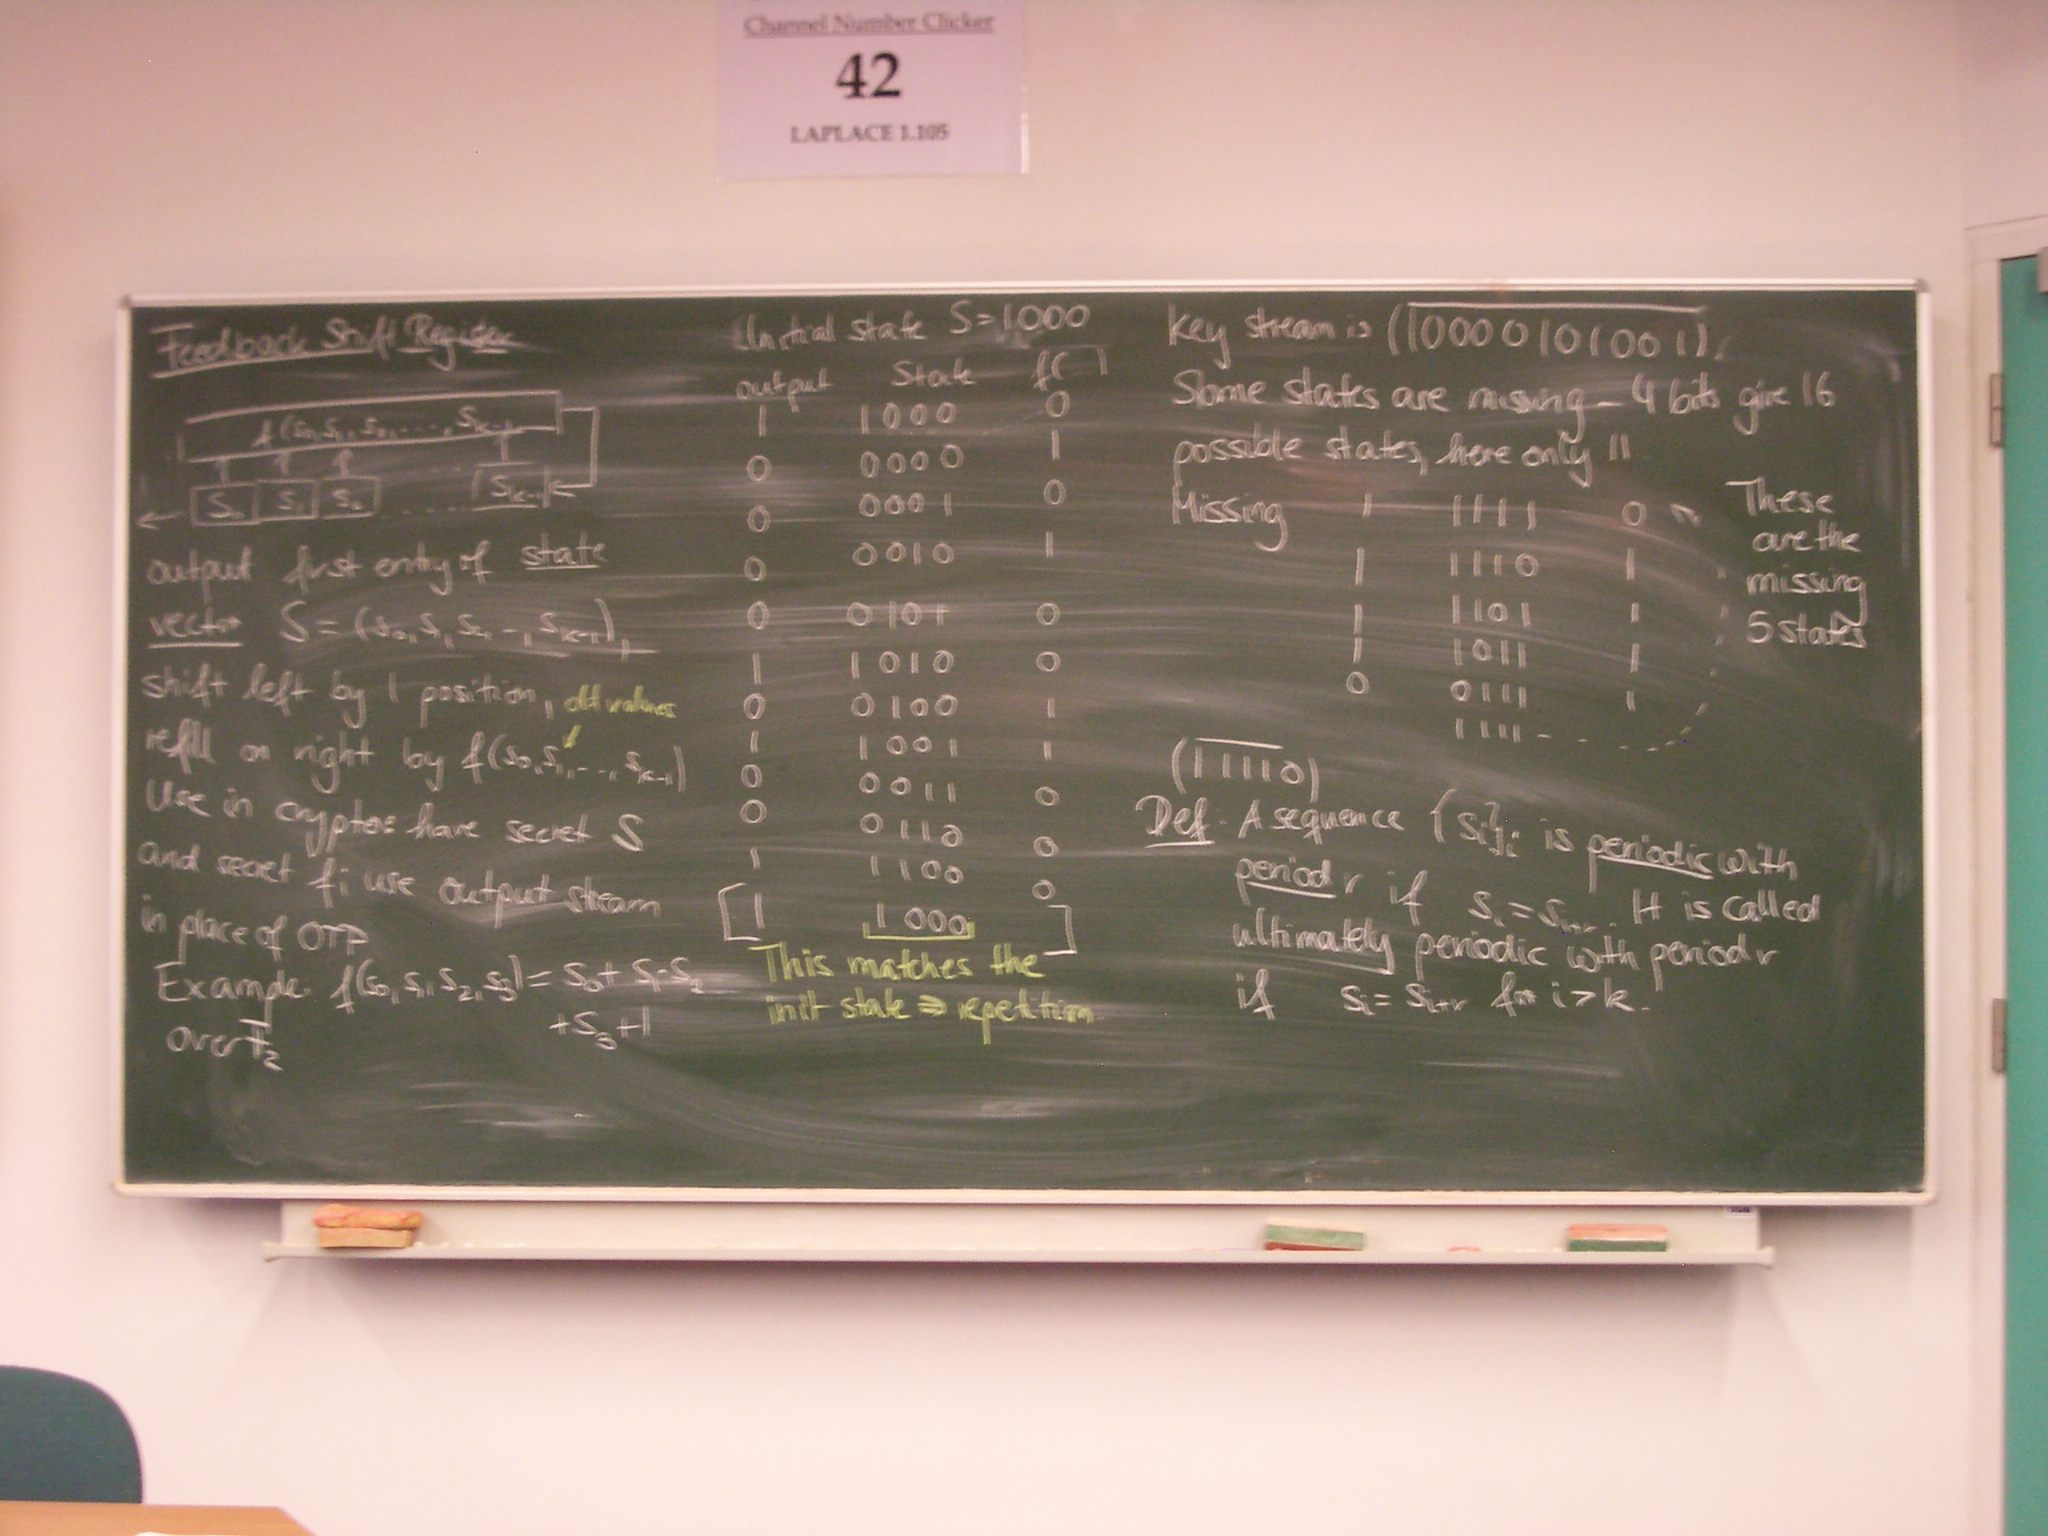 Channel Number Clicker
42
LAPLACE 1.105
Feedback Shift Register
f(s₀,s₁,s₂,....,sₖ₋₁)
s₀ s₁ s₂ ...... sₖ₋₁
output first entry of state
vector S=(s₀,s₁,s₂,..,sₖ₋₁),
shift left by 1 position, old values
refill on right by f(s₀,s₁,...,sₖ₋₁)
Use in crypto: have secret S
and secret f; use output stream
in place of OTP
Example: f(s₀,s₁,s₂,s₃)=s₀+s₁·s₂
+s₃+1
over F₂
Initial state S=1000
output State f( )
1 1000 0
0 0000 1
0 0001 0
0 0010 1
0 0101 0
1 1010 0
0 0100 1
1 1001 1
0 0011 0
0 0110 0
1 1100 0
[1 1000 ]
This matches the
init state ⇒ repetition
Key stream is (10000101001),
Some states are missing - 4 bits give 16
possible states, here only 11
Missing 1 1111 0
1 1110 1
1 1101 1
1 1011 1
0 0111 1
1111
These
are the
missing
5 states
(11110)
Def. A sequence {sᵢ}ᵢ is periodic with
period r if sᵢ=sᵢ₊ᵣ. It is called
ultimately periodic with period r
if sᵢ=sᵢ₊ᵣ for i>k.